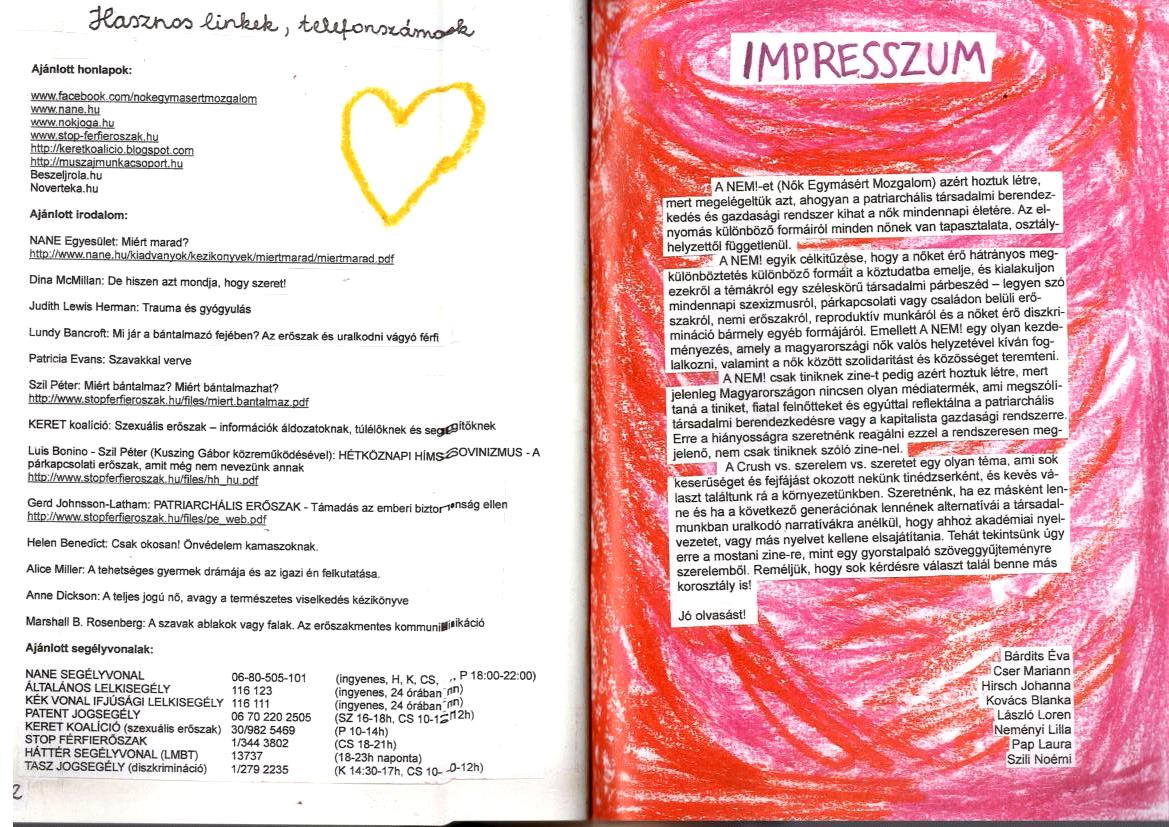 Hasznos linkek, telefonszámok
Ajánlott honlapok:
www.facebook.com/nokegymasertmozgalom
www.nane.hu
www.nokjoga.hu
www.stop-ferfieroszak.hu
http://keretkoalicio.blogspot.com
http://muszajmunkacsoport.hu
Beszeljrola.hu
Noverteka.hu
Ajánlott irodalom:
NANE Egyesület: Miért marad?
http://www.nane.hu/kiadvanyok/kezikonyvek/miertmarad/miertmarad.pdf
Dina McMillan: De hiszen azt mondja, hogy szeret!
Judith Lewis Herman: Trauma és gyógyulás
Lundy Bancroft: Mi jár a bántalmazó fejében? Az erőszak és uralkodni vágyó férfi
Patricia Evans: Szavakkal verve
Szil Péter: Miért bántalmaz? Miért bántalmazhat?
http://www.stopferfieroszak.hu/files/miert.bantalmaz.pdf
KERET koalíció: Szexuális erőszak – információk áldozatoknak, túlélőknek és segítőknek
Luis Bonino - Szil Péter (Kuszing Gábor közreműködésével): HÉTKÖZNAPI HÍMSOVINIZMUS - A
párkapcsolati erőszak, amit még nem nevezünk annak
http://www.stopferfieroszak.hu/files/hh_hu.pdf
Gerd Johnsson-Latham: PATRIARCHÁLIS ERŐSZAK - Támadás az emberi biztonság ellen
http://www.stopferfieroszak.hu/files/pe_web.pdf
Helen Benedict: Csak okosan! Önvédelem kamaszoknak.
Alice Miller: A tehetséges gyermek drámája és az igazi én felkutatása.
Anne Dickson: A teljes jogú nő, avagy a természetes viselkedés kézikönyve
Marshall B. Rosenberg: A szavak ablakok vagy falak. Az erőszakmentes kommunikáció
Ajánlott segélyvonalak:
NANE SEGÉLYVONAL 06-80-505-101 (ingyenes, H, K, CS, P 18:00-22:00)
ÁLTALÁNOS LELKISEGÉLY 116 123 (ingyenes, 24 órában)
KÉK VONAL IFJÚSÁGI LELKISEGÉLY 116 111 (ingyenes, 24 órában)
PATENT JOGSEGÉLY 06 70 220 2505 (SZ 16-18h, CS 10-12h)
KERET KOALÍCIÓ (szexuális erőszak) 30/982 5469 (P 10-14h)
STOP FÉRFIERŐSZAK 1/344 3802 (CS 18-21h)
HÁTTÉR SEGÉLYVONAL (LMBT) 13737 (18-23h naponta)
TASZ JOGSEGÉLY (diszkrimináció) 1/279 2235 (K 14:30-17h, CS 10-12h)
2
IMPRESSZUM
A NEM!-et (Nők Egymásért Mozgalom) azért hoztuk létre,
mert megelégeltük azt, ahogyan a patriarchális társadalmi berendez-
kedés és gazdasági rendszer kihat a nők mindennapi életére. Az el-
nyomás különböző formáiról minden nőnek van tapasztalata, osztály-
helyzettől függetlenül.
A NEM! egyik célkitűzése, hogy a nőket érő hátrányos meg-
különböztetés különböző formáit a köztudatba emelje, és kialakuljon
ezekről a témákról egy széleskörű társadalmi párbeszéd – legyen szó
mindennapi szexizmusról, párkapcsolati vagy családon belüli erő-
szakról, nemi erőszakról, reproduktív munkáról és a nőket érő diszkri-
mináció bármely egyéb formájáról. Emellett A NEM! egy olyan kezde-
ményezés, amely a magyarországi nők valós helyzetével kíván fog-
lalkozni, valamint a nők között szolidaritást és közösséget teremteni.
A NEM! csak tiniknek zine-t pedig azért hoztuk létre, mert
jelenleg Magyarországon nincsen olyan médiatermék, ami megszólí-
taná a tiniket, fiatal felnőtteket és egyúttal reflektálna a patriarchális
társadalmi berendezkedésre vagy a kapitalista gazdasági rendszerre.
Erre a hiányosságra szeretnénk reagálni ezzel a rendszeresen meg-
jelenő, nem csak tiniknek szóló zine-nel.
A Crush vs. szerelem vs. szeretet egy olyan téma, ami sok
keserűséget és fejfájást okozott nekünk tinédzserként, és kevés vá-
laszt találtunk rá a környezetünkben. Szeretnénk, ha ez másként len-
ne és ha a következő generációnak lennének alternatívái a társadal-
munkban uralkodó narratívákra anélkül, hogy ahhoz akadémiai nyel-
vezetet, vagy más nyelvet kellene elsajátítania. Tehát tekintsünk úgy
erre a mostani zine-re, mint egy gyorstalpaló szöveggyűjteményre
szerelemből. Reméljük, hogy sok kérdésre választ talál benne más
korosztály is!
Jó olvasást!
Bárdits Éva
Cser Mariann
Hirsch Johanna
Kovács Blanka
László Loren
Neményi Lilla
Pap Laura
Szili Noémi